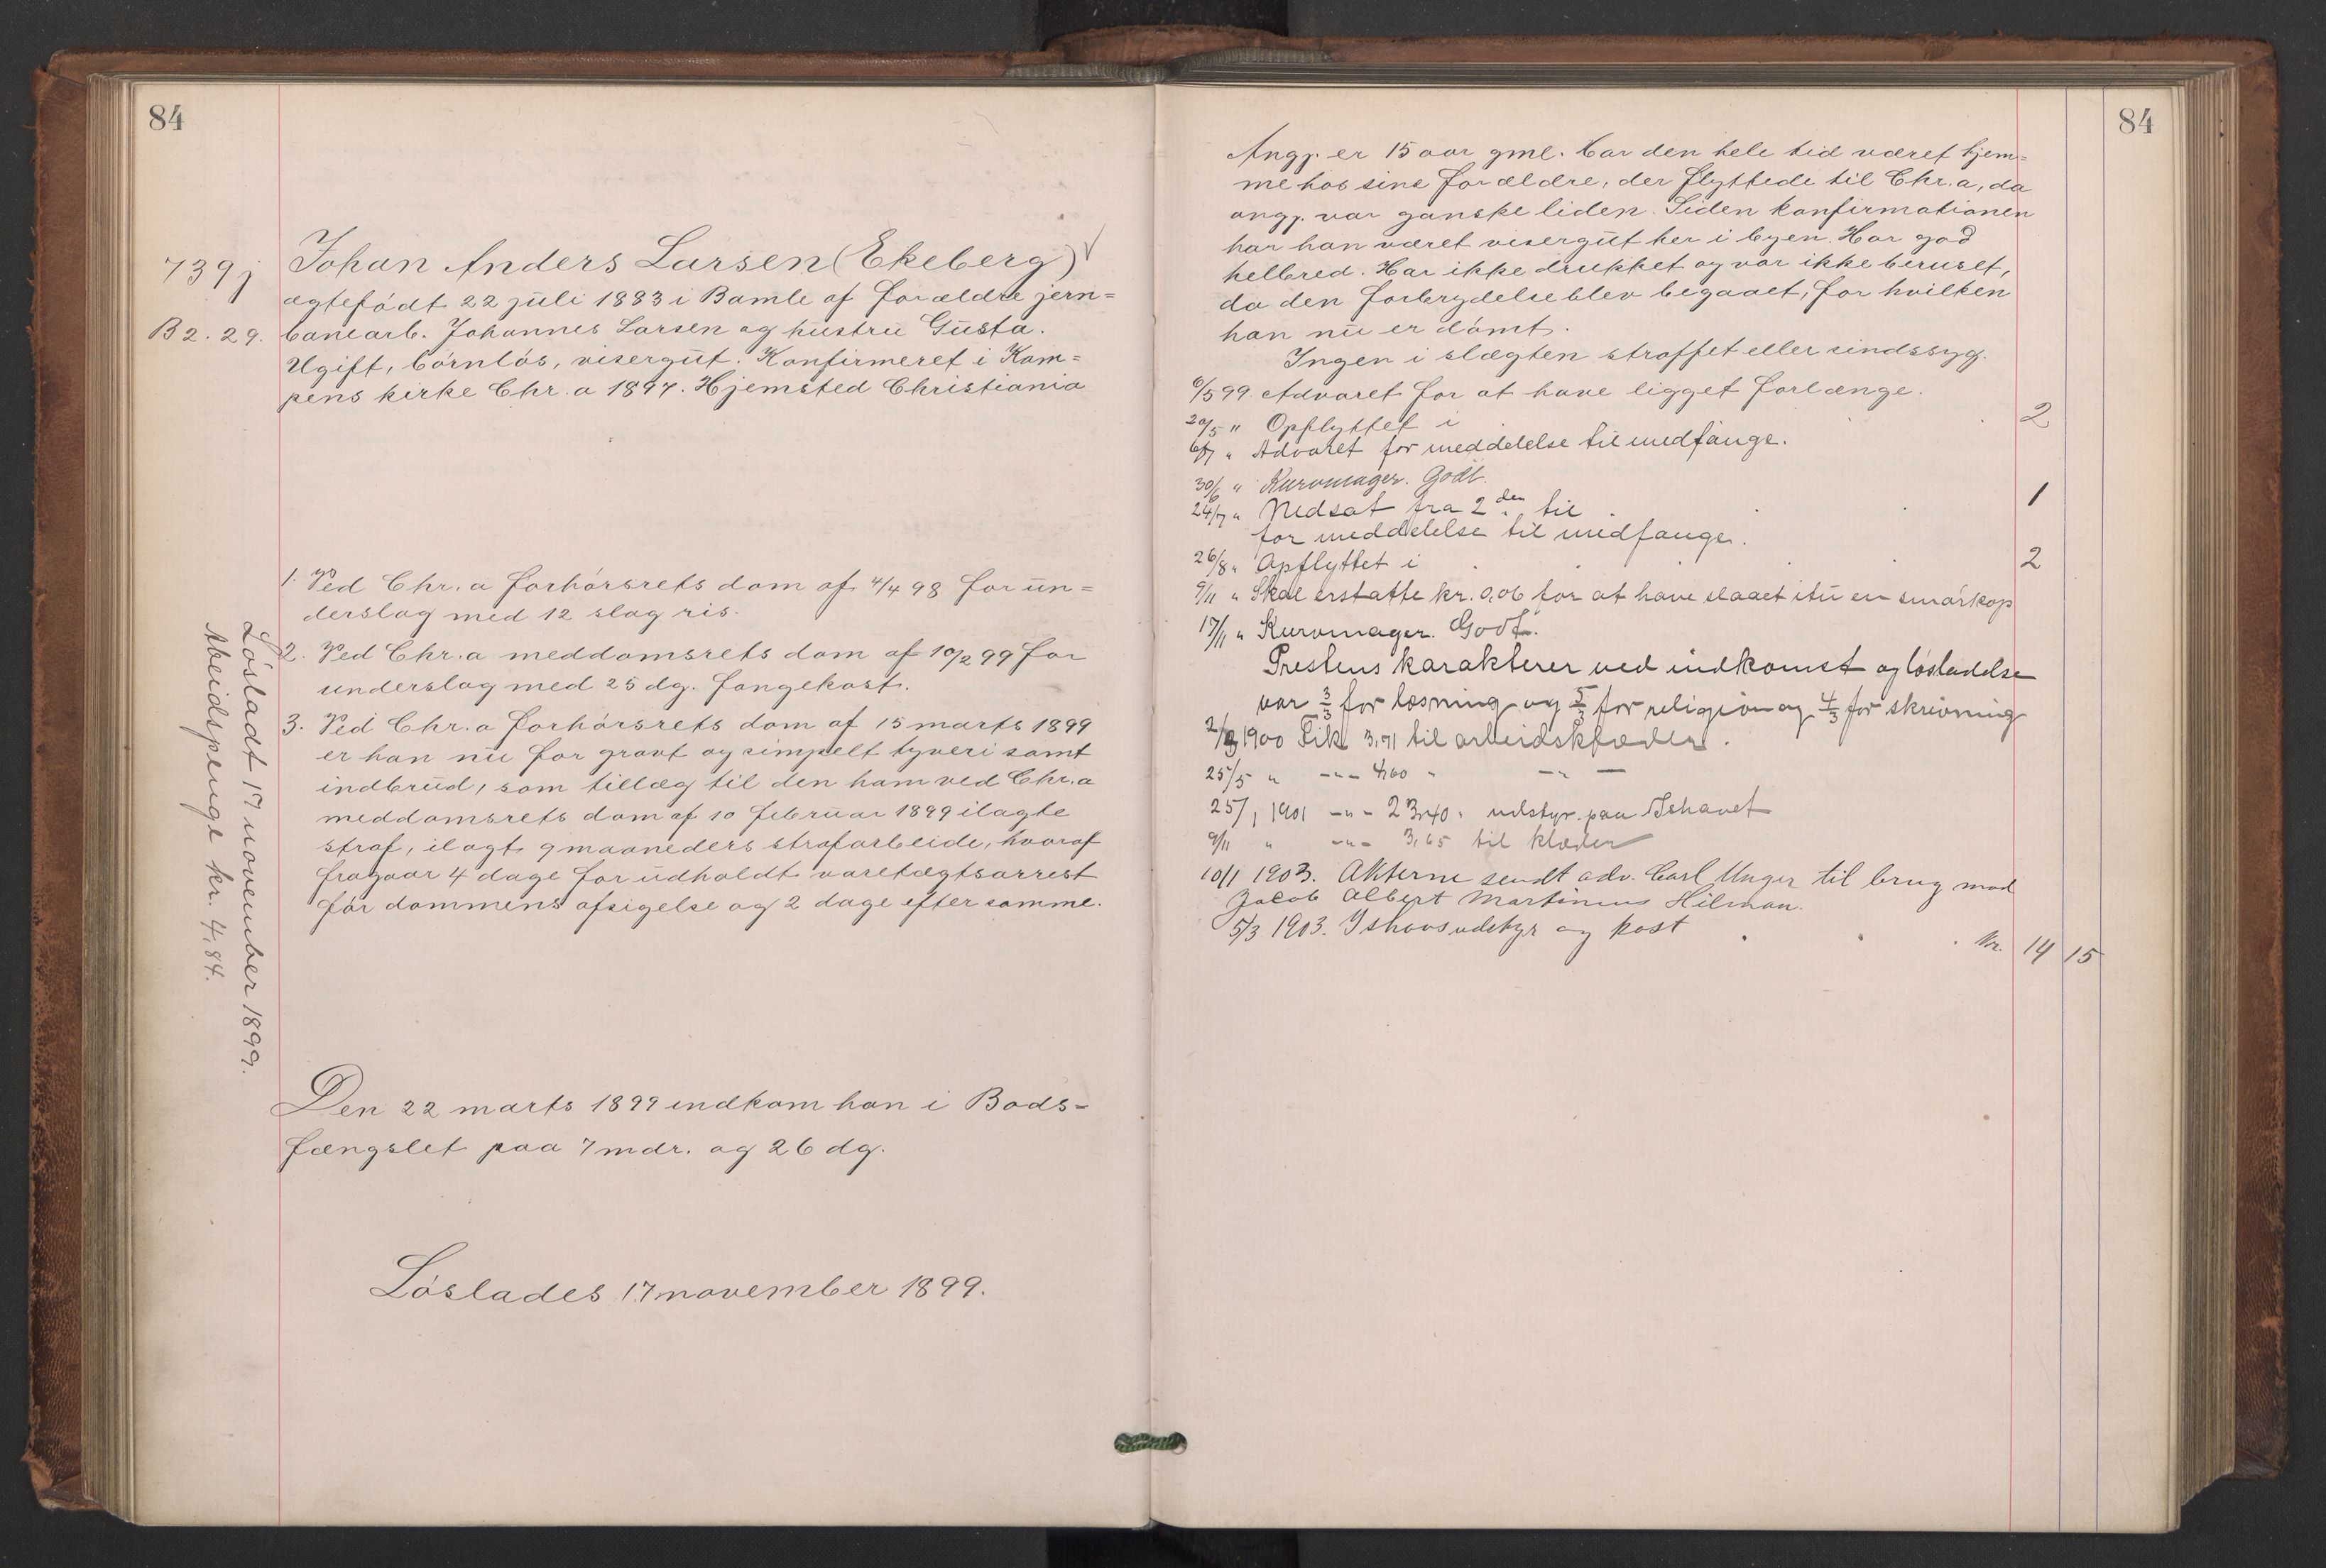 84
739j Johan Anders Larsen (Ekeberg) √
ægtefödt 22 juli 1883 i Bamle af forældre jern=
B 2. 29. banearb. Johannes Larsen og hustru Gusta.
Ugift, börnlös, visergut. Konfirmeret i Kam=
pens kirke Chr.a 1897. Hjemsted Christiania
1. Ved Chr.a forhörsrets dom af 4/4 98 for un=
derslag med 12 slag ris.
2. Ved Chr.a meddomsrets dom af 10/2 99 for
underslag med 25 dg. fangekost.
3. Ved Chr.a forhörsrets dom af 15 marts 1899
er han nu for grovt og simpelt tyveri samt
indbrud, som tillæg til den ham ved Chr.a
meddomsrets dom af 10 februar 1899 ilagte
straf, ilagt 9 maaneders strafarbeide, hvoraf
fragaar 4 dage for udholdt varetægtsarrest
för dommens afsigelse og 2 dage efter samme.
Lösladt 17 november 1899.
Abeidspenge kr. 4,84.
Den 22 marts 1899 indkom han i Bods=
fængslet paa 7 mdr. og 26 dg.
Löslades 17 november 1899.
84
Angj. er 15 aar gml. Har den hele tid været hjem=
me hos sine forældre, der flyttede til Chr.a, da
angj. var ganske liden. Siden konfirmationen
har han været visergut her i byen. Har god
helbred. Har ikke drukket og var ikke beruset,
da den forbrydelse blev begaaet, for hvilken
han nu er dömt.
Ingen i slægten straffet eller sindssyg.
6/5 99 Advaret for at have ligget forlænge.
20/5 " Opflyttet i 2
6/7 " Advaret for meddelelse til medfange.
30/6 " Kurvmager. Godt.
24/7 " Nedsat fra 2den til 1
for meddelelse til medfange.
26/8 " Opflyttet i 2
9/11 " Skal erstatte kr. 0,06 for at have slaaet itu en smörkop
17/11 " Kurvmager. Godt.
Prestens karakterer ved indkomst og lösladelse
var 3/3 for læsning og 5/3 for religion og 4/3 for skrivning
2/3 1900 Fik 3,91 til arbeidsklæder.
25/5 " -"- 4,60 " -"-
25/1 1901 -"- 23,40 " udstyr paa Ishavet
9/11 " -"- 3,65 til klæder
10/1 1903. Akterne sendt adv. Carl Unger til brug mod
Jacob Albert Martinius Hilman.
5/3 1903. Ishavsudstyr og kost Kr. 14 15